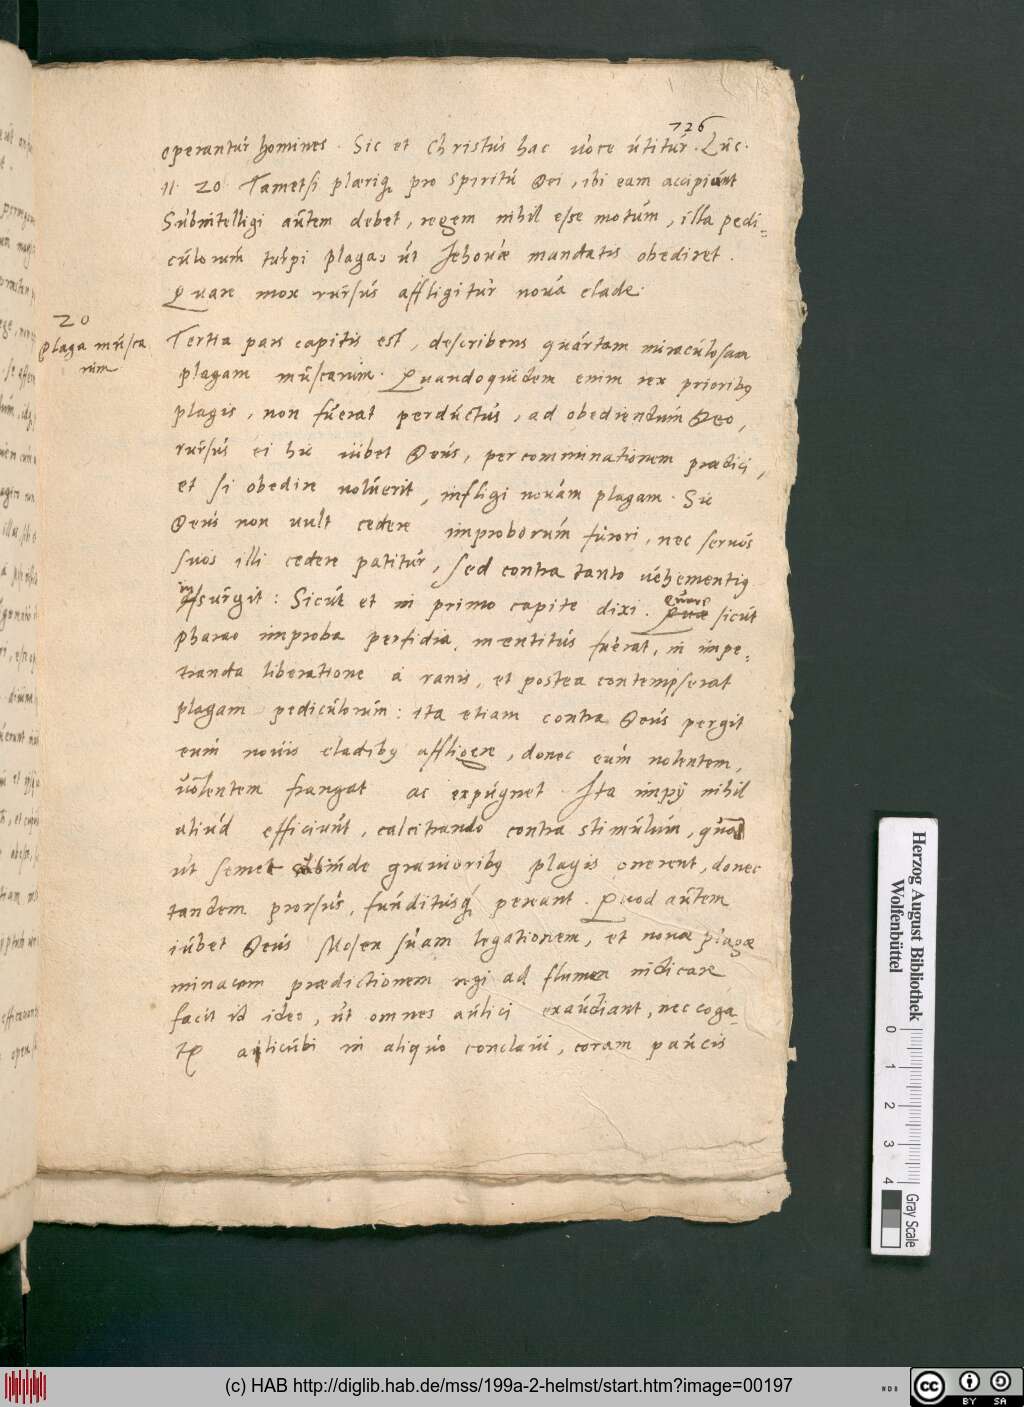 126
operantur homines. Sic et Christus hac voce utitur. Luc.
11. 20. Tametsi plæriq, pro spiritu Dei, ibi eam accipiunt
Subintelligi autem debet, regem nihil esse motum, illa pedi=
culorum turpi plaga, ut Jehovæ mandatis obediret.
Quare mox rursus affligitur nova clade.
20
Plaga musca
rum
Tertia pars capitis est, describens quartam miraculosam
plagam muscarum. Quandoquidem enim rex priorib9
plagis, non fuerat perductus, ad obediendum Deo,
rursus ei hic iubet Deus, per comminationem prædici,
et si obedire noluerit, infligi novam plagam. Sic
Deus non vult cedere improborum furori, nec servos
suos illi cedere patitur, sed contra tanto vehementi9
insurgit: Sicut et in primo capite dixi. Quare sicut
pharao improba perfidia, mentitus fuerat, in impe=
tranda liberatione à ranis, et postea contempserat
plagam pediculorum: ita etiam contra Deus pergit
eum novis cladib9 affligere, donec eum nolentem,
volentem frangat ac expugnet. Ita impij nihil
aliud efficiunt, calcitrando contra stimulum, quam
ut semet subinde graviorib9 plagis onerent, donec
tandem prorsus, funditusq, pereant. Quod autem
iubet Deus Mosen suam legationem, et novæ plagæ
minacem prædictionem regi ad flumen indicare
facit id ideo, ut omnes aulici exaudiant, nec coga=
alicubi in aliquo conclavi, coram paucis
Herzog August Bibliothek
Wolfenbüttel
0 1 2 3 4
Gray Scale
(c) HAB http://diglib.hab.de/mss/199a-2-helmst/start.htm?image=00197
cc BY SA